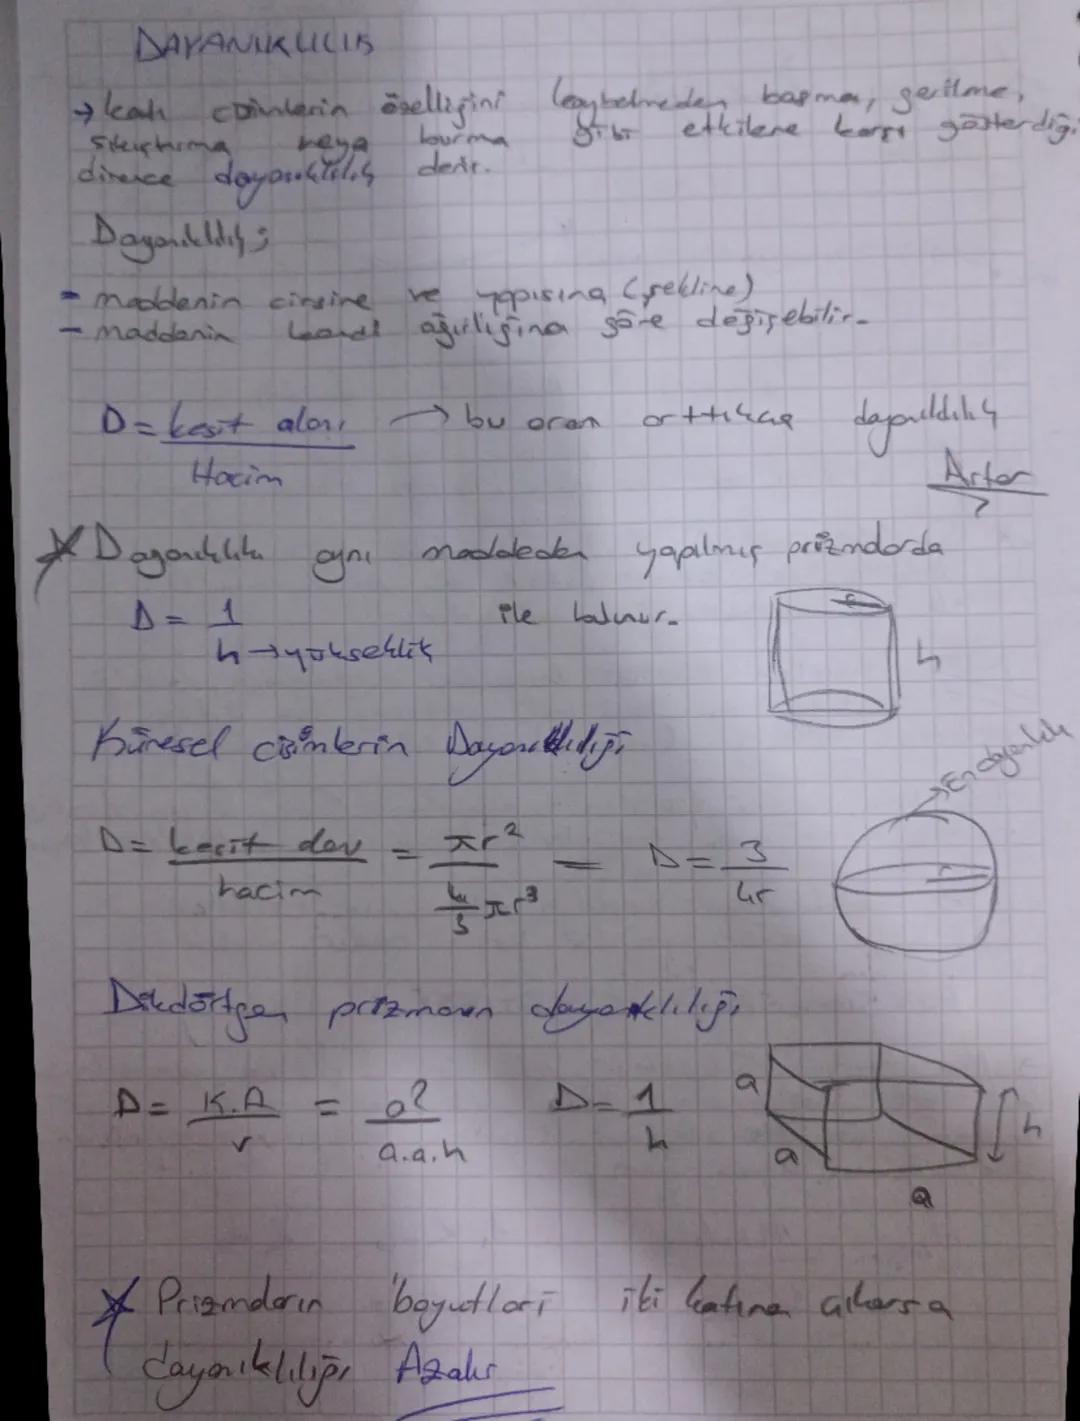 DAYANIKLILIK
→ katı cisimlerin özelliğini kaybetmeden basma, gerilme,
sıkıştırma veya burma gibi etkilere karşı gösterdiği
dirence dayanıklılık denir.
Dayanıklılık;
- maddenin cinsine ve yapısına (şekline)
- maddenin kendi ağırlığına göre değişebilir.
D = kesit alanı → bu oran arttıkça dayanıklılık
Hacim
Artar
Dayanıklılık aynı maddeden yapılmış prizmalarda
D = 1 ile bulunur.
h → yükseklik
h
Küresel cisimlerin Dayanıklılığı
En dayanıklı
D = kesit alanı = πr² = D = 3
hacim 4/3 πr³ 4r
Dikdörtgen prizmanın dayanıklılığı
D = K.A = a² D = 1
v a.a.h h
a
a
h
a
Prizmaların boyutları iki katına çıkarsa
dayanıklılığı Azalır